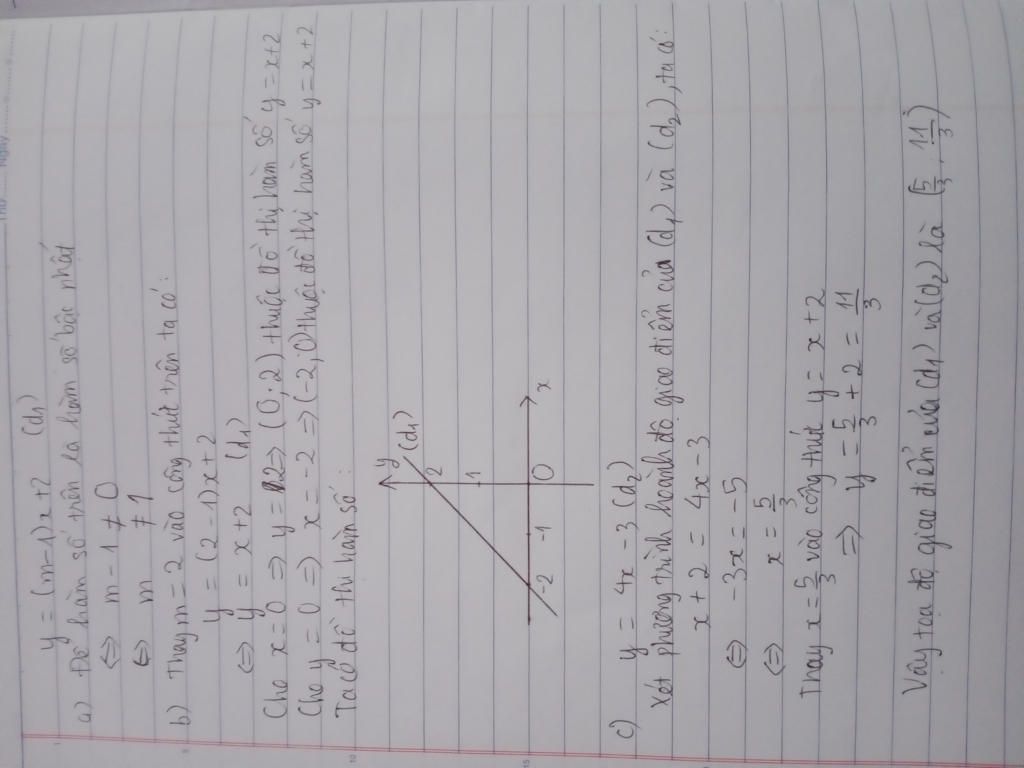 Thứ Ngày
y = (m-1)x+2 (d₁)
a) Để hàm số trên là hàm số bậc nhất
⇔ m-1 ≠ 0
⇔ m ≠ 1
b) Thay m = 2 vào công thức trên ta có:
y = (2-1)x+2
⇔ y = x+2 (d₁)
Cho x=0 ⇒ y = 2 ⇒ (0;2) thuộc đồ thị hàm số y = x+2
Cho y = 0 ⇒ x = -2 ⇒ (-2;0) thuộc đồ thị hàm số y = x+2
Ta có đồ thị hàm số:
y (d₁)
2
1
-2 -1 0 x
c) y = 4x-3 (d₂)
Xét phương trình hoành độ giao điểm của (d₁) và (d₂), ta có:
x+2 = 4x-3
⇔ -3x = -5
⇔ x = 5/3
Thay x = 5/3 vào công thức y = x+2
⇒ y = 5/3 + 2 = 11/3
Vậy tọa độ giao điểm của (d₁) và (d₂) là (5/3; 11/3)
1
5
10
15